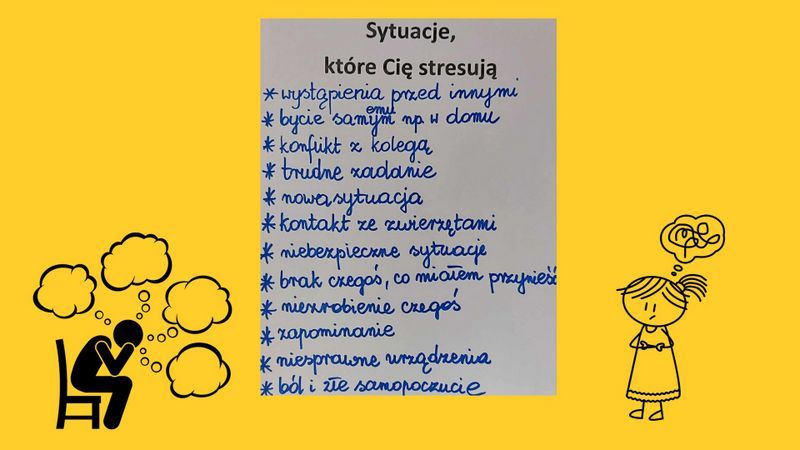 Sytuacje,
które Cię stresują
* wystąpienia przed innymi
* bycie samymemu np. w domu
* konflikt z kolegą
* trudne zadanie
* nowa sytuacja
* kontakt ze zwierzętami
* niebezpieczne sytuacje
* brak czegoś, co miałem przynieść
* niezrobienie czegoś
* zapominanie
* niesprawne urządzenia
* ból i złe samopoczucie